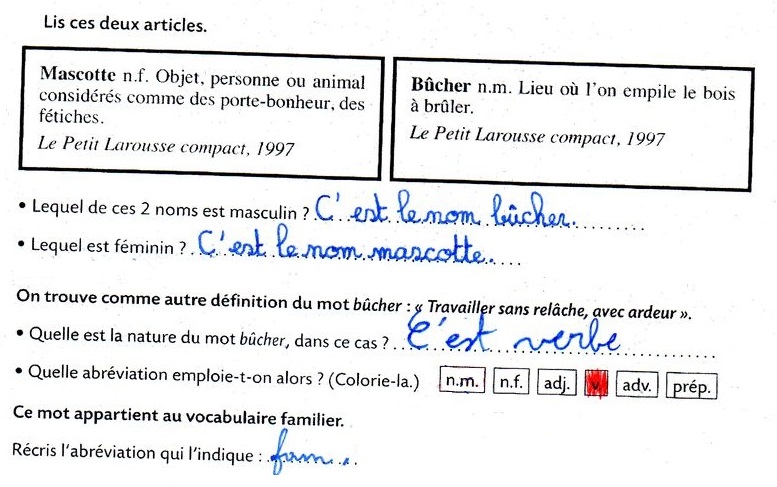 Lis ces deux articles.
Mascotte n.f. Objet, personne ou animal
considérés comme des porte-bonheur, des
fétiches.
Le Petit Larousse compact, 1997
Bûcher n.m. Lieu où l'on empile le bois
à brûler.
Le Petit Larousse compact, 1997
• Lequel de ces 2 noms est masculin ? C'est le nom bûcher.
• Lequel est féminin ? C'est le nom mascotte.
On trouve comme autre définition du mot bûcher : « Travailler sans relâche, avec ardeur ».
• Quelle est la nature du mot bûcher, dans ce cas ? C'est verbe
• Quelle abréviation emploie-t-on alors ? (Colorie-la.) n.m. n.f. adj. v. adv. prép.
Ce mot appartient au vocabulaire familier.
Récris l'abréviation qui l'indique : fam.